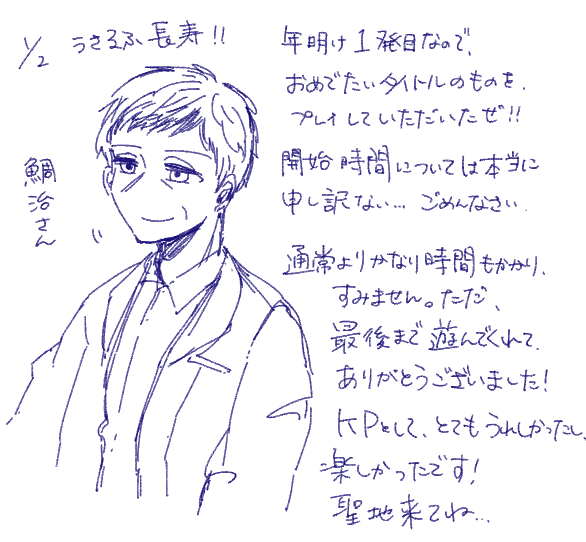 1/2 うさるふ長寿!!
鯛治さん
年明け1発目なので、
おめでたいタイトルのものを、
プレイしていただいたぜ!!
開始時間については本当に
申し訳ない… ごめんなさい
通常よりかなり時間もかかり、
すみません。ただ、
最後まで遊んでくれて、
ありがとうございました!
KPとして、とてもうれしかったし、
楽しかったです!
聖地来てね…